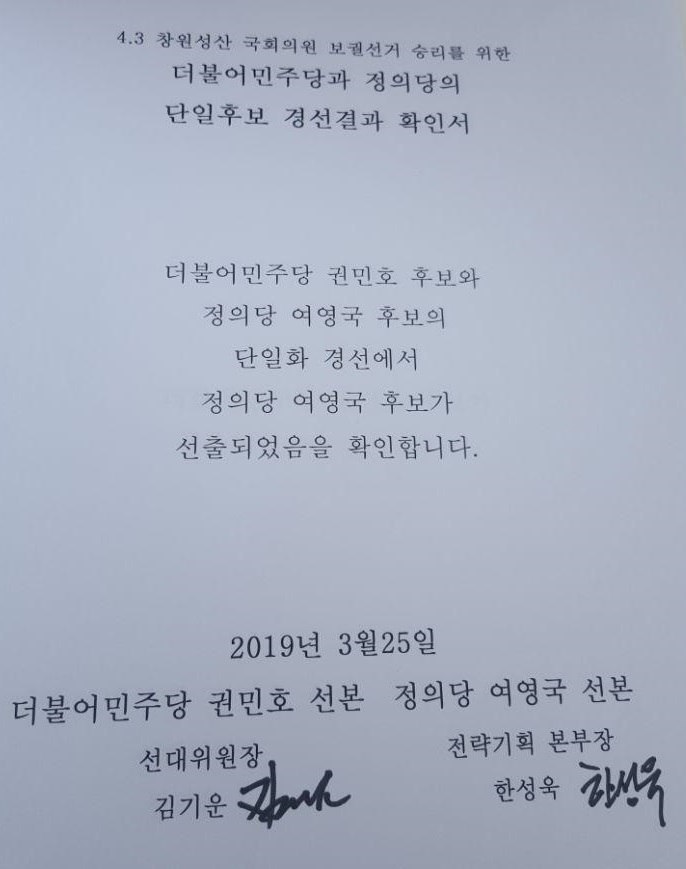 4.3 창원성산 국회의원 보궐선거 승리를 위한
더불어민주당과 정의당의
단일후보 경선결과 확인서
더불어민주당 권민호 후보와
정의당 여영국 후보의
단일화 경선에서
정의당 여영국 후보가
선출되었음을 확인합니다.
2019년 3월25일
더불어민주당 권민호 선본 정의당 여영국 선본
선대위원장
김기운
전략기획 본부장
한성욱 한성욱